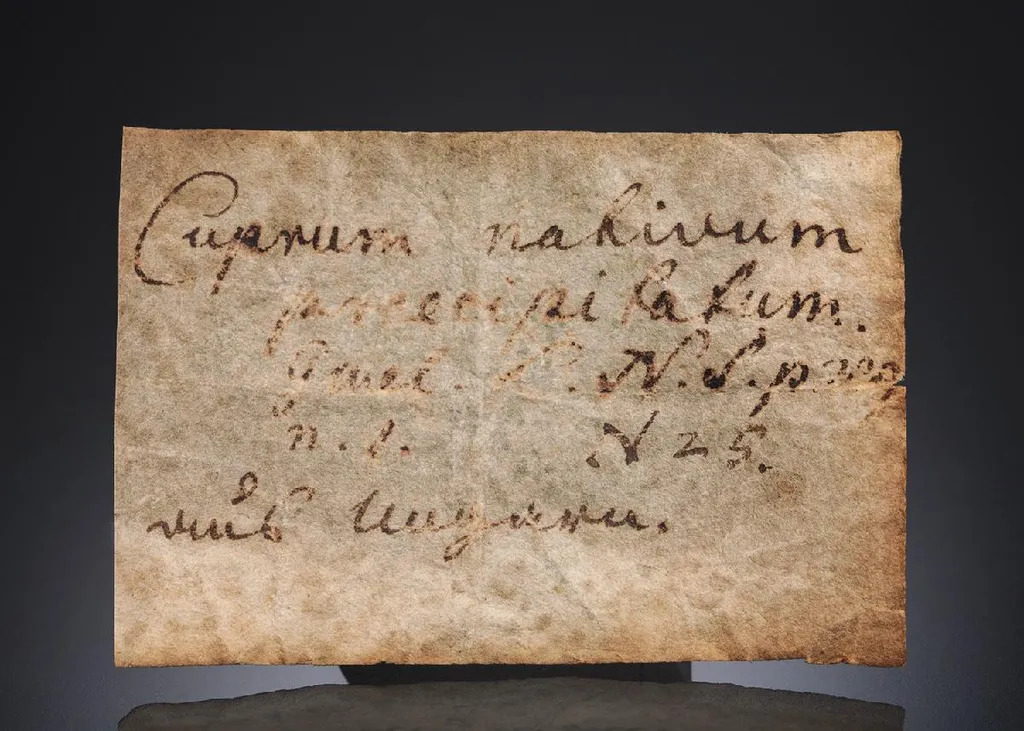 Cuprum nativum
præcipitatum.
Gmel. L. N. S. p.
n. 1. N 25.
aus Ungarn.